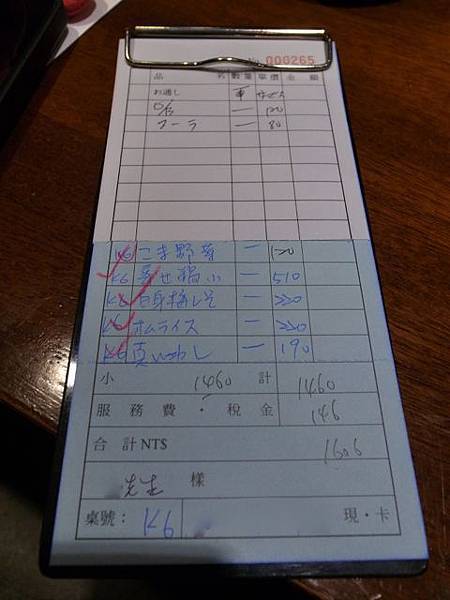 No 000265
品 名 數量 單價 金 額
お通し
一 120
コーラ 一 80
K6 ごま野菜 一 120
K6 寄せ鍋小 一 510
K6 白身梅しそ 一 220
K6 オムライス 一 220
K6 一 190
小 1460 計 1460
服務費・稅金 146
合 計NT$ 1606
先生 樣
桌號: K6 現・卡